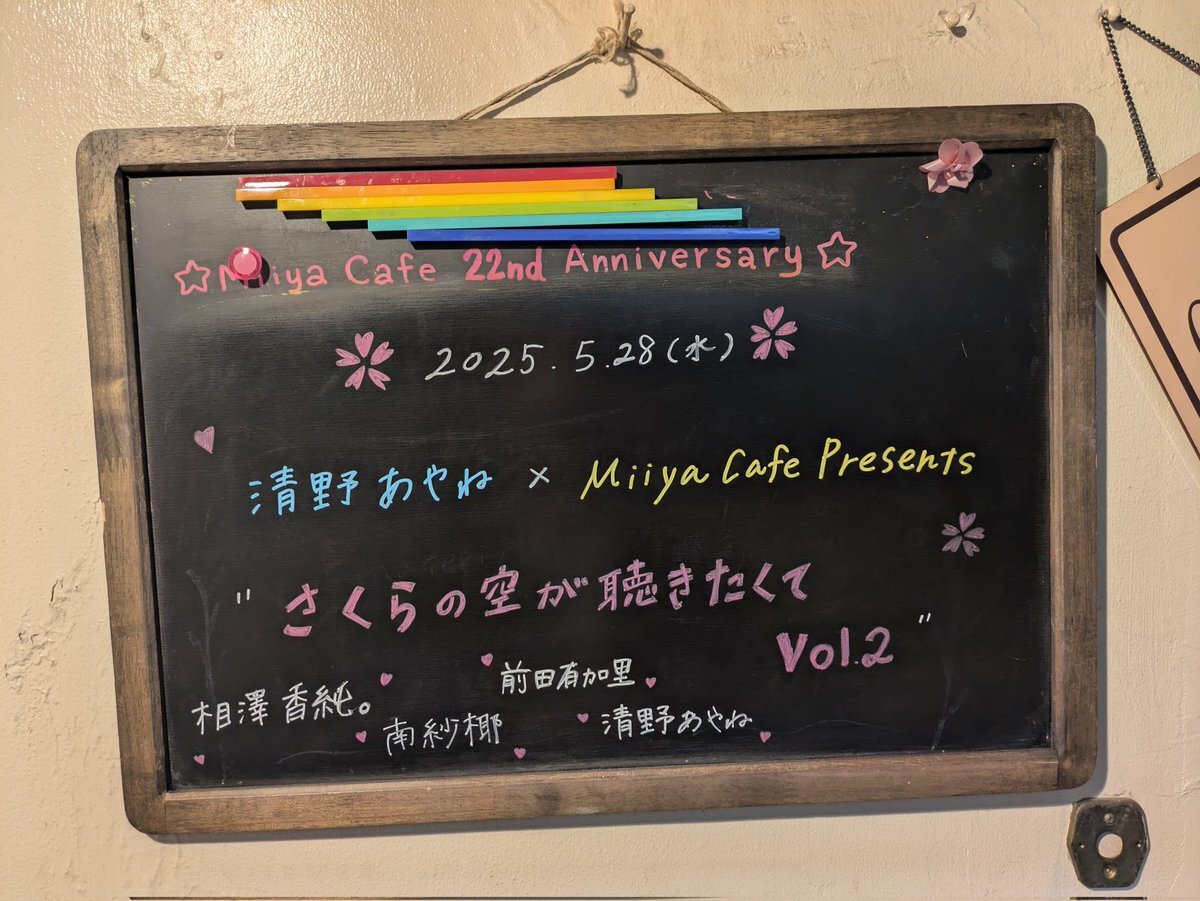 ☆Miiya Cafe 22nd Anniversary☆
2025.5.28(水)
清野あやね × Miiya Cafe Presents
"さくらの空が聴きたくて
Vol.2"
前田有加里
相澤香純。
南紗椰
清野あやね